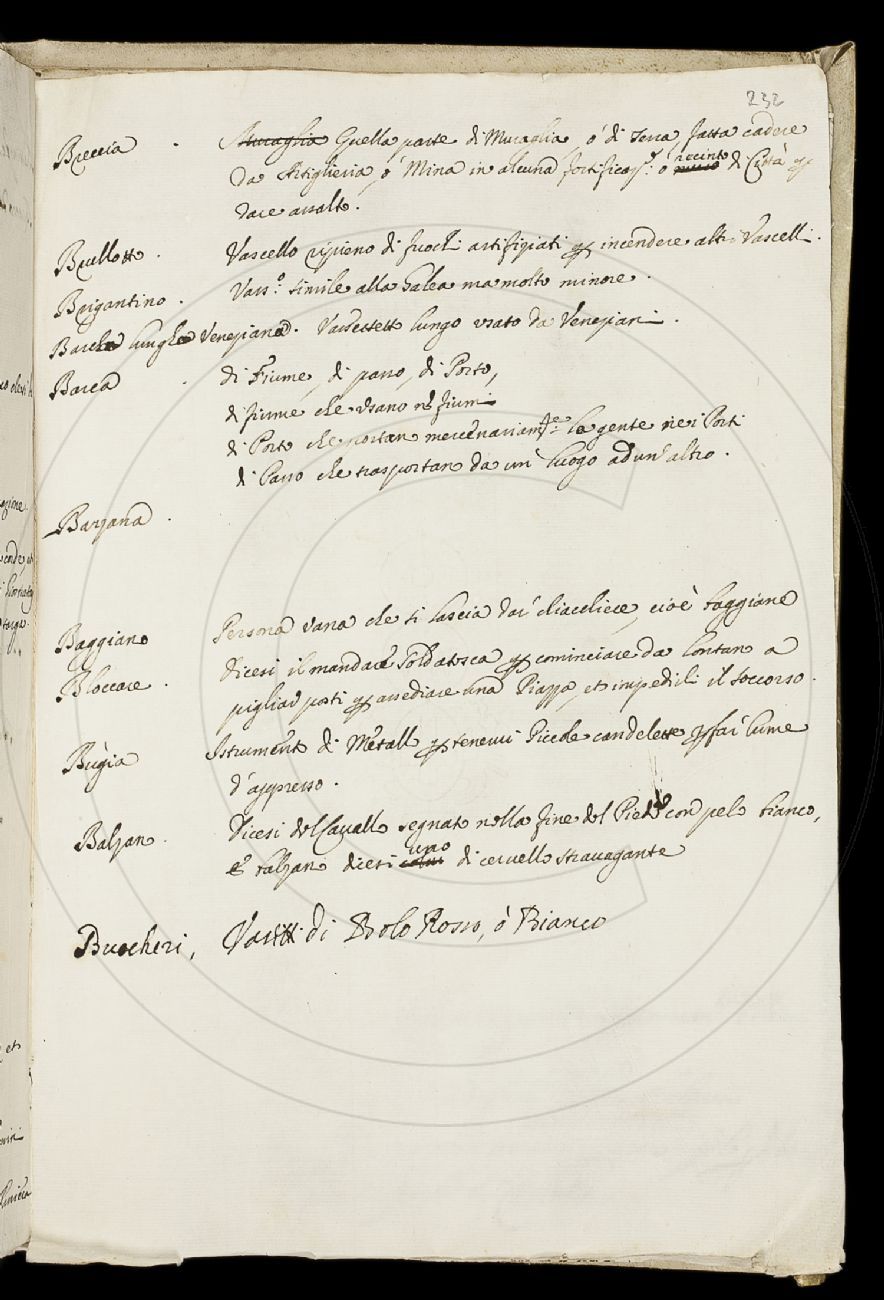 232
Breccia. Muraglia Quella parte di Muraglia, ò di Terra, fatta cadere
da Artiglieria, ò Mina in alcuna fortificaz.e ò muro recinto di Città p
dare assalto.
Brullotto. Vascello ripieno di fuochi artifiziati p incendere altri Vascelli.
Brigantino. Vass.o simile alla Galea ma molto minore.
Barcha lungha Veneziana. Vasselletto lungo usato da Veneziani.
Barca. di Fiume, di passo, di Porto,
di fiume che usano ne fiumi
di Porto che portan mercenariam.te la gente nei Porti
di Passo che trasportan da un luogo ad un'altro.
Barzana.
Baggiano Persona vana che si lascia dar chiacchiere, cioè baggiane
Bloccare. dicesi il mandare Soldatesca p cominciare da lontan a
pigliar posti p assediare una Piazza, et impedirli il soccorso.
Bugia Istrumento di Metallo p tenervi Piccole candelette p far lume
d'appresso.
Balzan. Dicesi del Cavallo segnato nella fine del Piede con pelo bianco,
e balzan dicesi uno di cervello stravagante
Buccheri, Vasetti di Bolo Rosso, ò Bianco